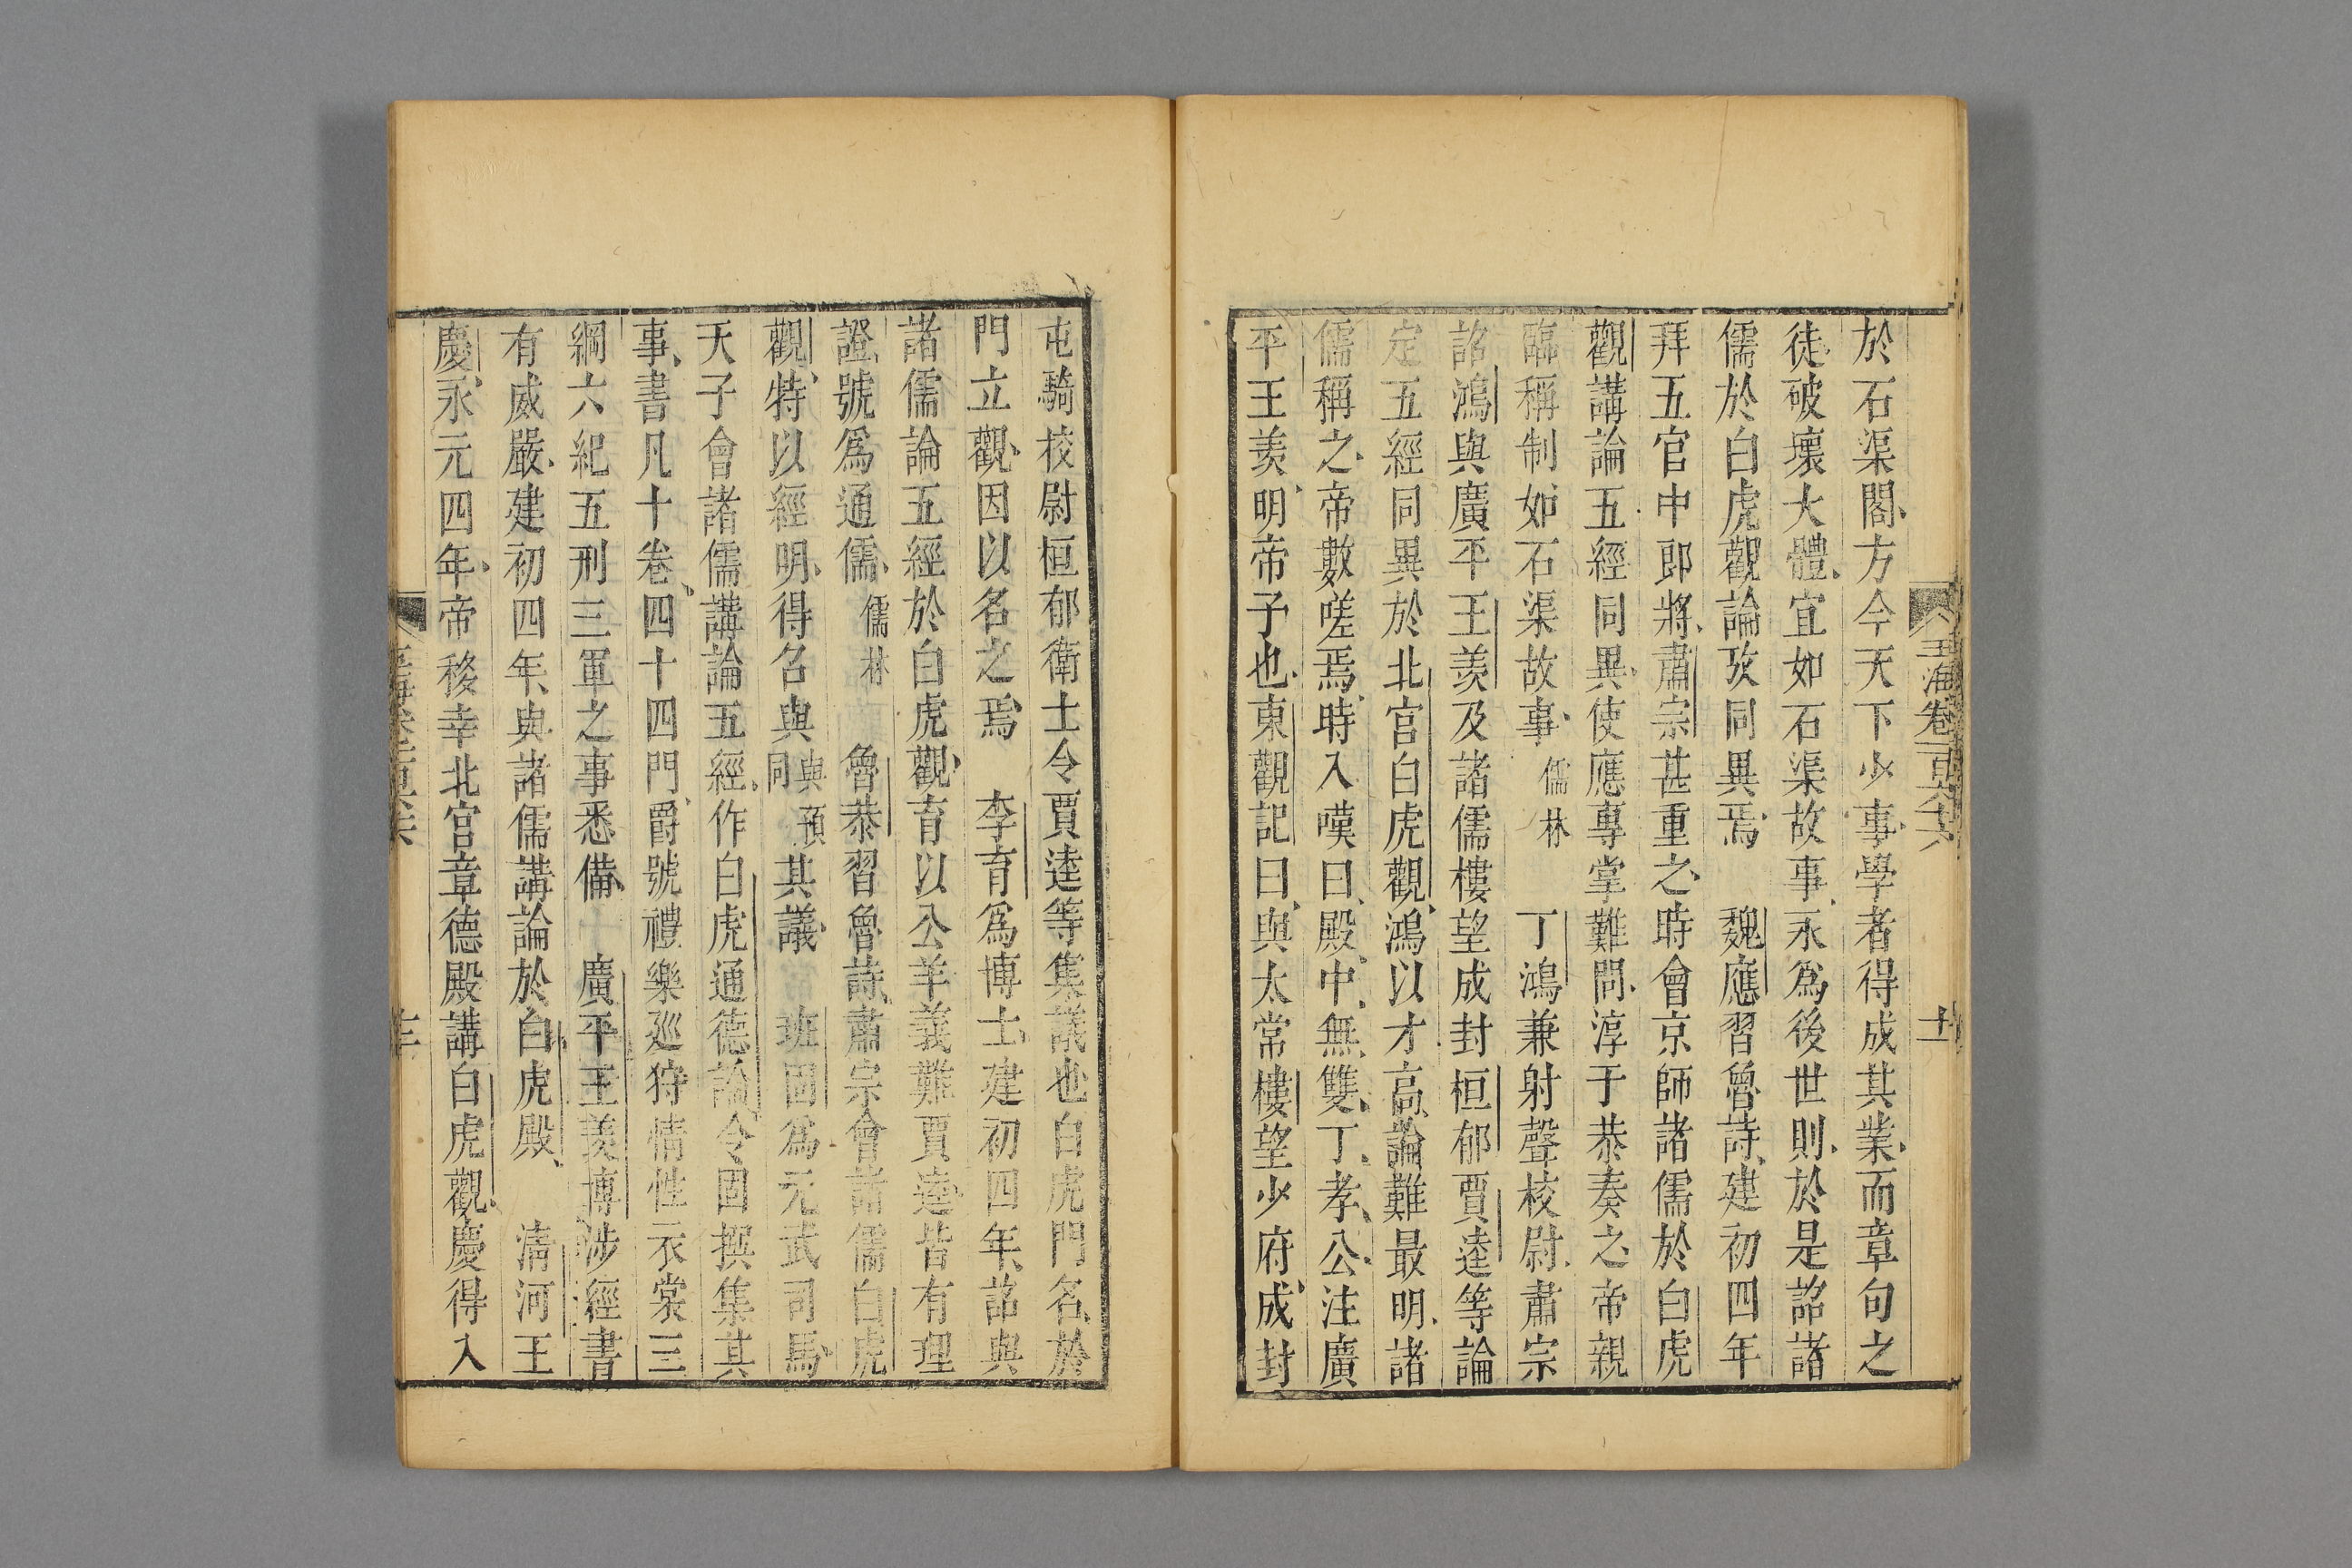 玉海卷一百六十六
十一
於石渠閣方今天下少事學者得成其業而章句之
徒破壞大體宜如石渠故事永爲後世則於是詔諸
儒於白虎觀論攷同異焉 魏應習魯詩建初四年
拜五官中郎將肅宗甚重之時會京師諸儒於白虎
觀講論五經同異使應專掌難問淳于恭奏之帝親
臨稱制如石渠故事儒林 丁鴻兼射聲校尉肅宗
詔鴻與廣平王羨及諸儒樓望成封桓郁賈逵等論
定五經同異於北宫白虎觀鴻以才高論難最明諸
儒稱之帝數嗟焉時入嘆曰殿中無雙丁孝公注廣
平王羨明帝子也東觀記曰與太常樓望少府成封
屯騎校尉桓郁衛士令賈逵等集議也白虎門名於
門立觀因以名之焉 李育爲博士建初四年詔與
諸儒論五經於白虎觀育以公羊義難賈逵皆有理
證號爲通儒儒林 魯恭習魯詩肅宗會諸儒白虎
觀特以經明得召與與預同其議 班固爲元武司馬
天子會諸儒講論五經作白虎通德論令固撰集其
事書凡十卷四十四門爵號禮樂廵狩情性衣裳三
綱六紀五刑三軍之事悉備 廣平王羨博涉經書
有威嚴建初四年與諸儒講論於白虎殿 清河王
慶永元四年帝移幸北宮章德殿講白虎觀慶得入